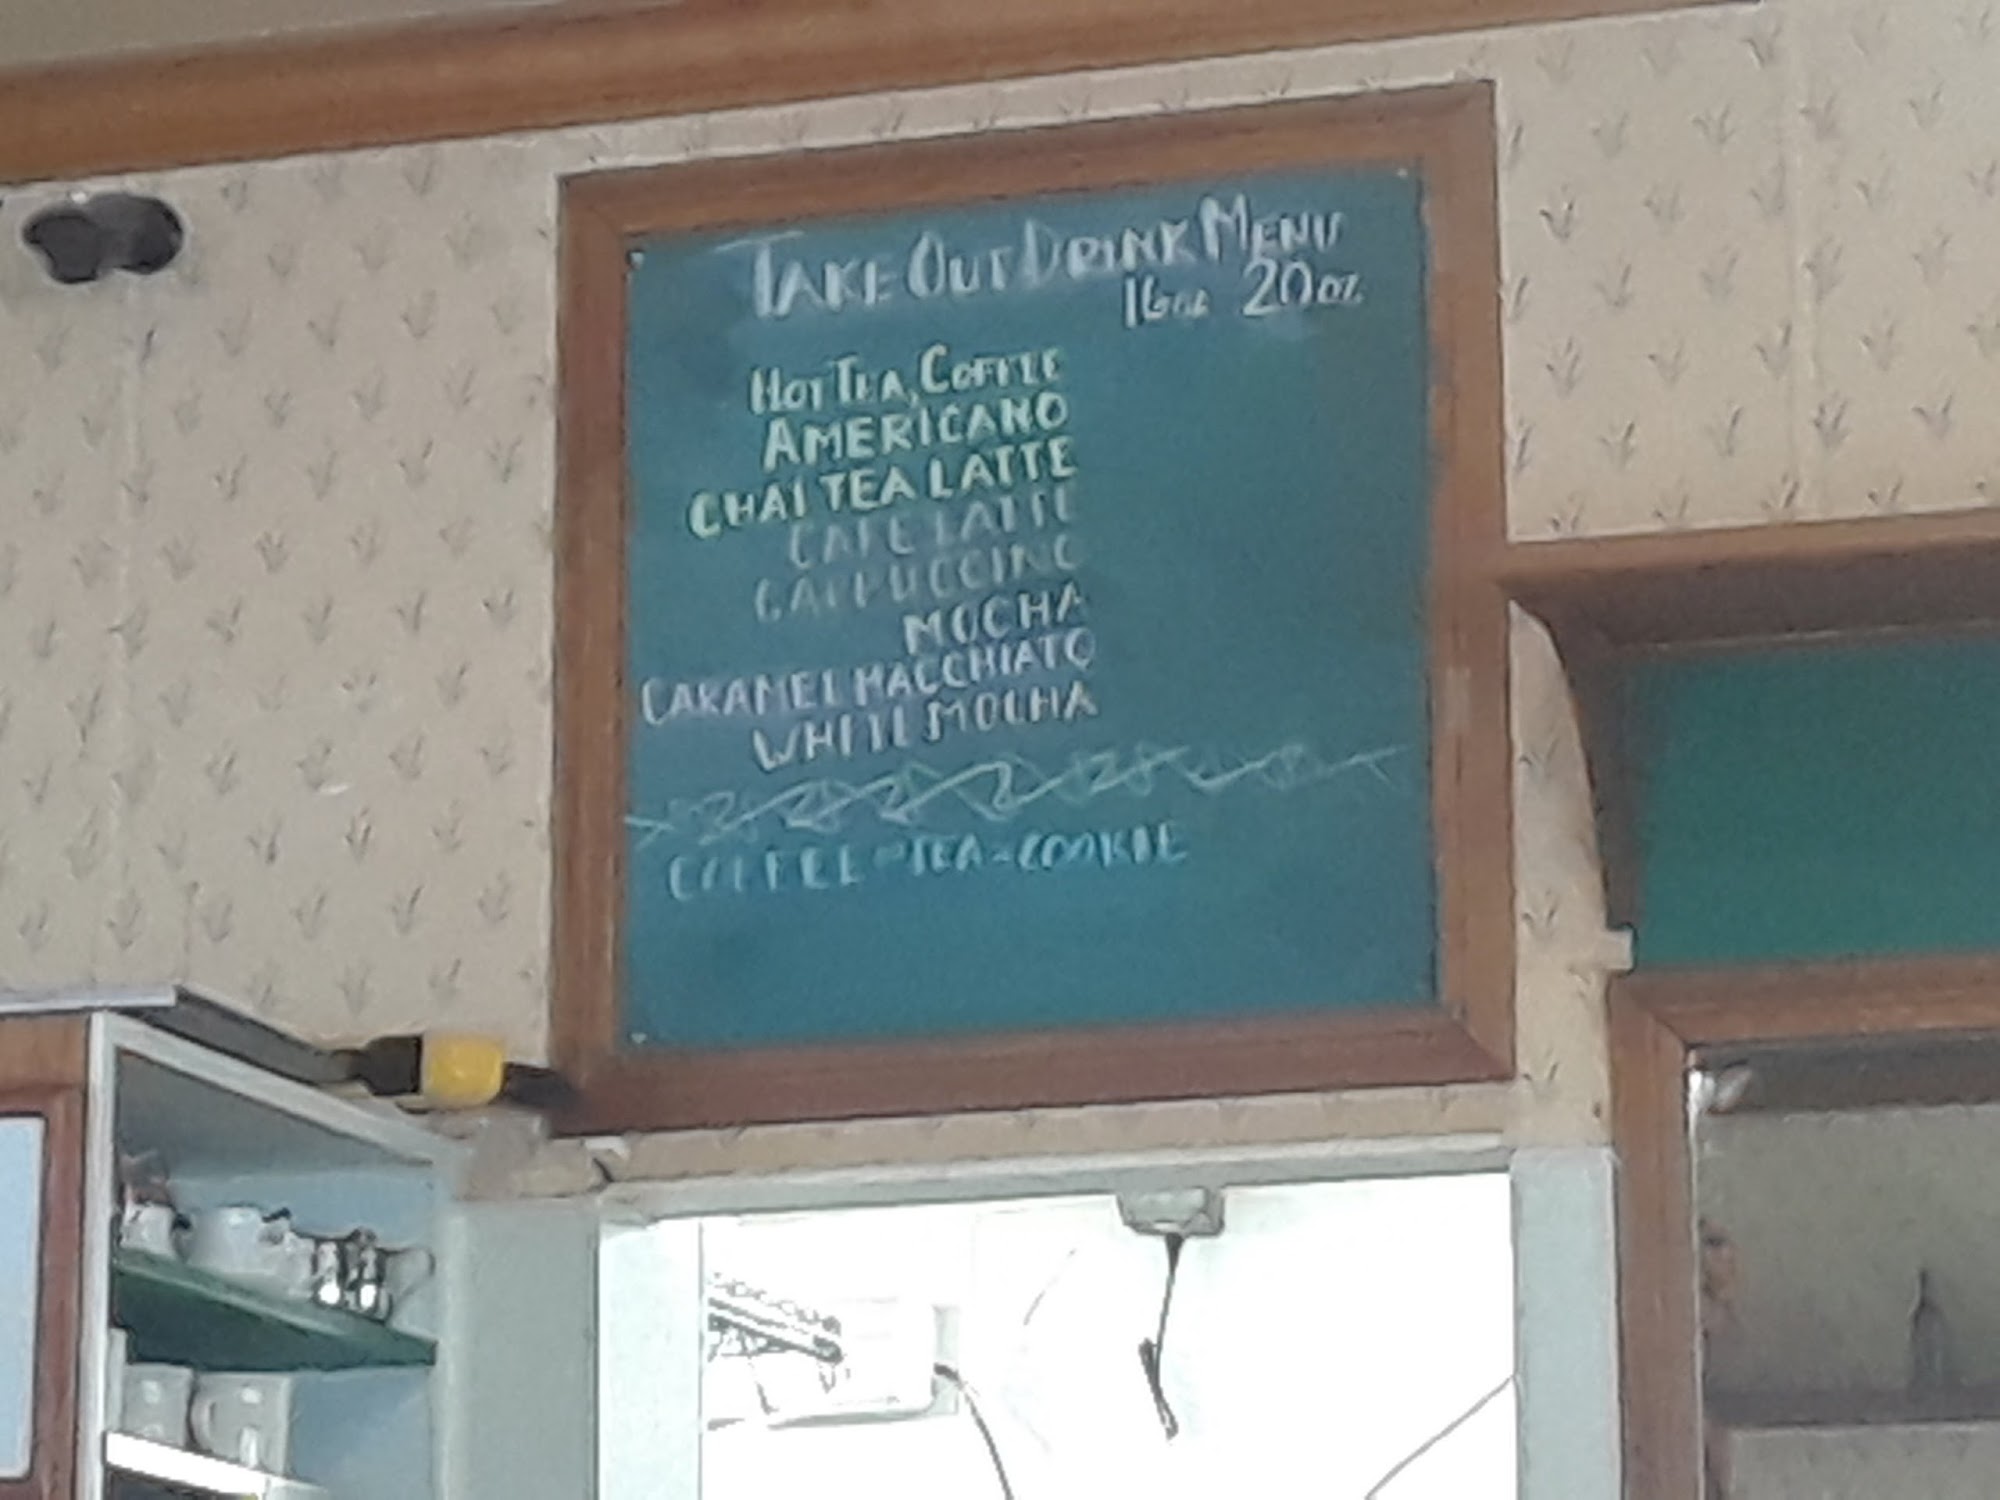 TAKE OUT DRINK MENU
16oz 20oz
HOT TEA, COFFEE
AMERICANO
CHAI TEA LATTE
CAFE LATTE
CAPPUCCINO
MOCHA
CARAMEL MACCHIATO
WHITE MOCHA
COFFEE - TEA - COOKIE